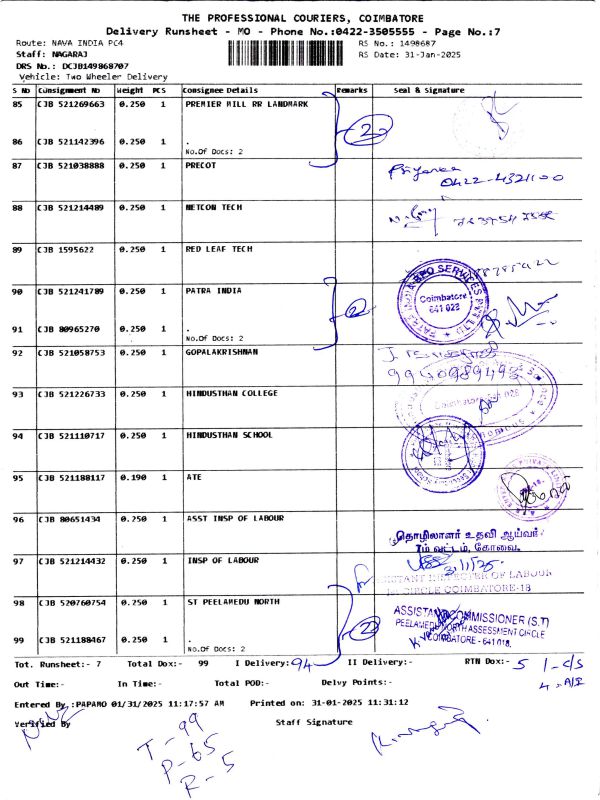 THE PROFESSIONAL COURIERS, COIMBATORE
Delivery Runsheet - MO - Phone No.:0422-3505555 - Page No.:7
Route: NAVA INDIA PC4
RS No.: 1498687
Staff: NAGARAJ
RS Date: 31-Jan-2025
DRS No.: DCJB149868707
Vehicle: Two Wheeler Delivery
S No Consignment No Weight PCS Consignee Details Remarks Seal & Signature
85 CJB 521269663 0.250 1 PREMIER MILL RR LANDMARK
2
86 CJB 521142396 0.250 1 .
No.Of Docs: 2
87 CJB 521038888 0.250 1 PRECOT
0422-4321100
88 CJB 521214489 0.250 1 NETCON TECH
89 CJB 1595622 0.250 1 RED LEAF TECH
90 CJB 521241789 0.250 1 PATRA INDIA
Coimbatore
641 028
2
91 CJB 80965270 0.250 1 .
No.Of Docs: 2
92 CJB 521058753 0.250 1 GOPALAKRISHNAN
93 CJB 521226733 0.250 1 HINDUSTHAN COLLEGE
94 CJB 521110717 0.250 1 HINDUSTHAN SCHOOL
95 CJB 521188117 0.190 1 ATE
96 CJB 80651434 0.250 1 ASST INSP OF LABOUR
தொழிலாளர் உதவி ஆய்வர்
7ம் வட்டம், கோவை.
97 CJB 521214432 0.250 1 INSP OF LABOUR
31/1/25
ASSISTANT INSPECTER OF LABOUR
CIRCLE COIMBATORE-18
98 CJB 520760754 0.250 1 ST PEELAMEDU NORTH
ASSISTANT COMMISSIONER (S.T)
PEELAMEDU NORTH ASSESSMENT CIRCLE
COIMBATORE - 641 018.
2
99 CJB 521188467 0.250 1 .
No.Of Docs: 2
Tot. Runsheet:- 7 Total Dox:- 99 I Delivery:- 94 II Delivery:- RTN Dox:- 5 1-C/S
Out Time:- In Time:- Total POD:- Delvy Points:-
Entered By :PAPAMO 01/31/2025 11:17:57 AM Printed on: 31-01-2025 11:31:12
Verified By
Staff Signature
T-99
P-65
R-5